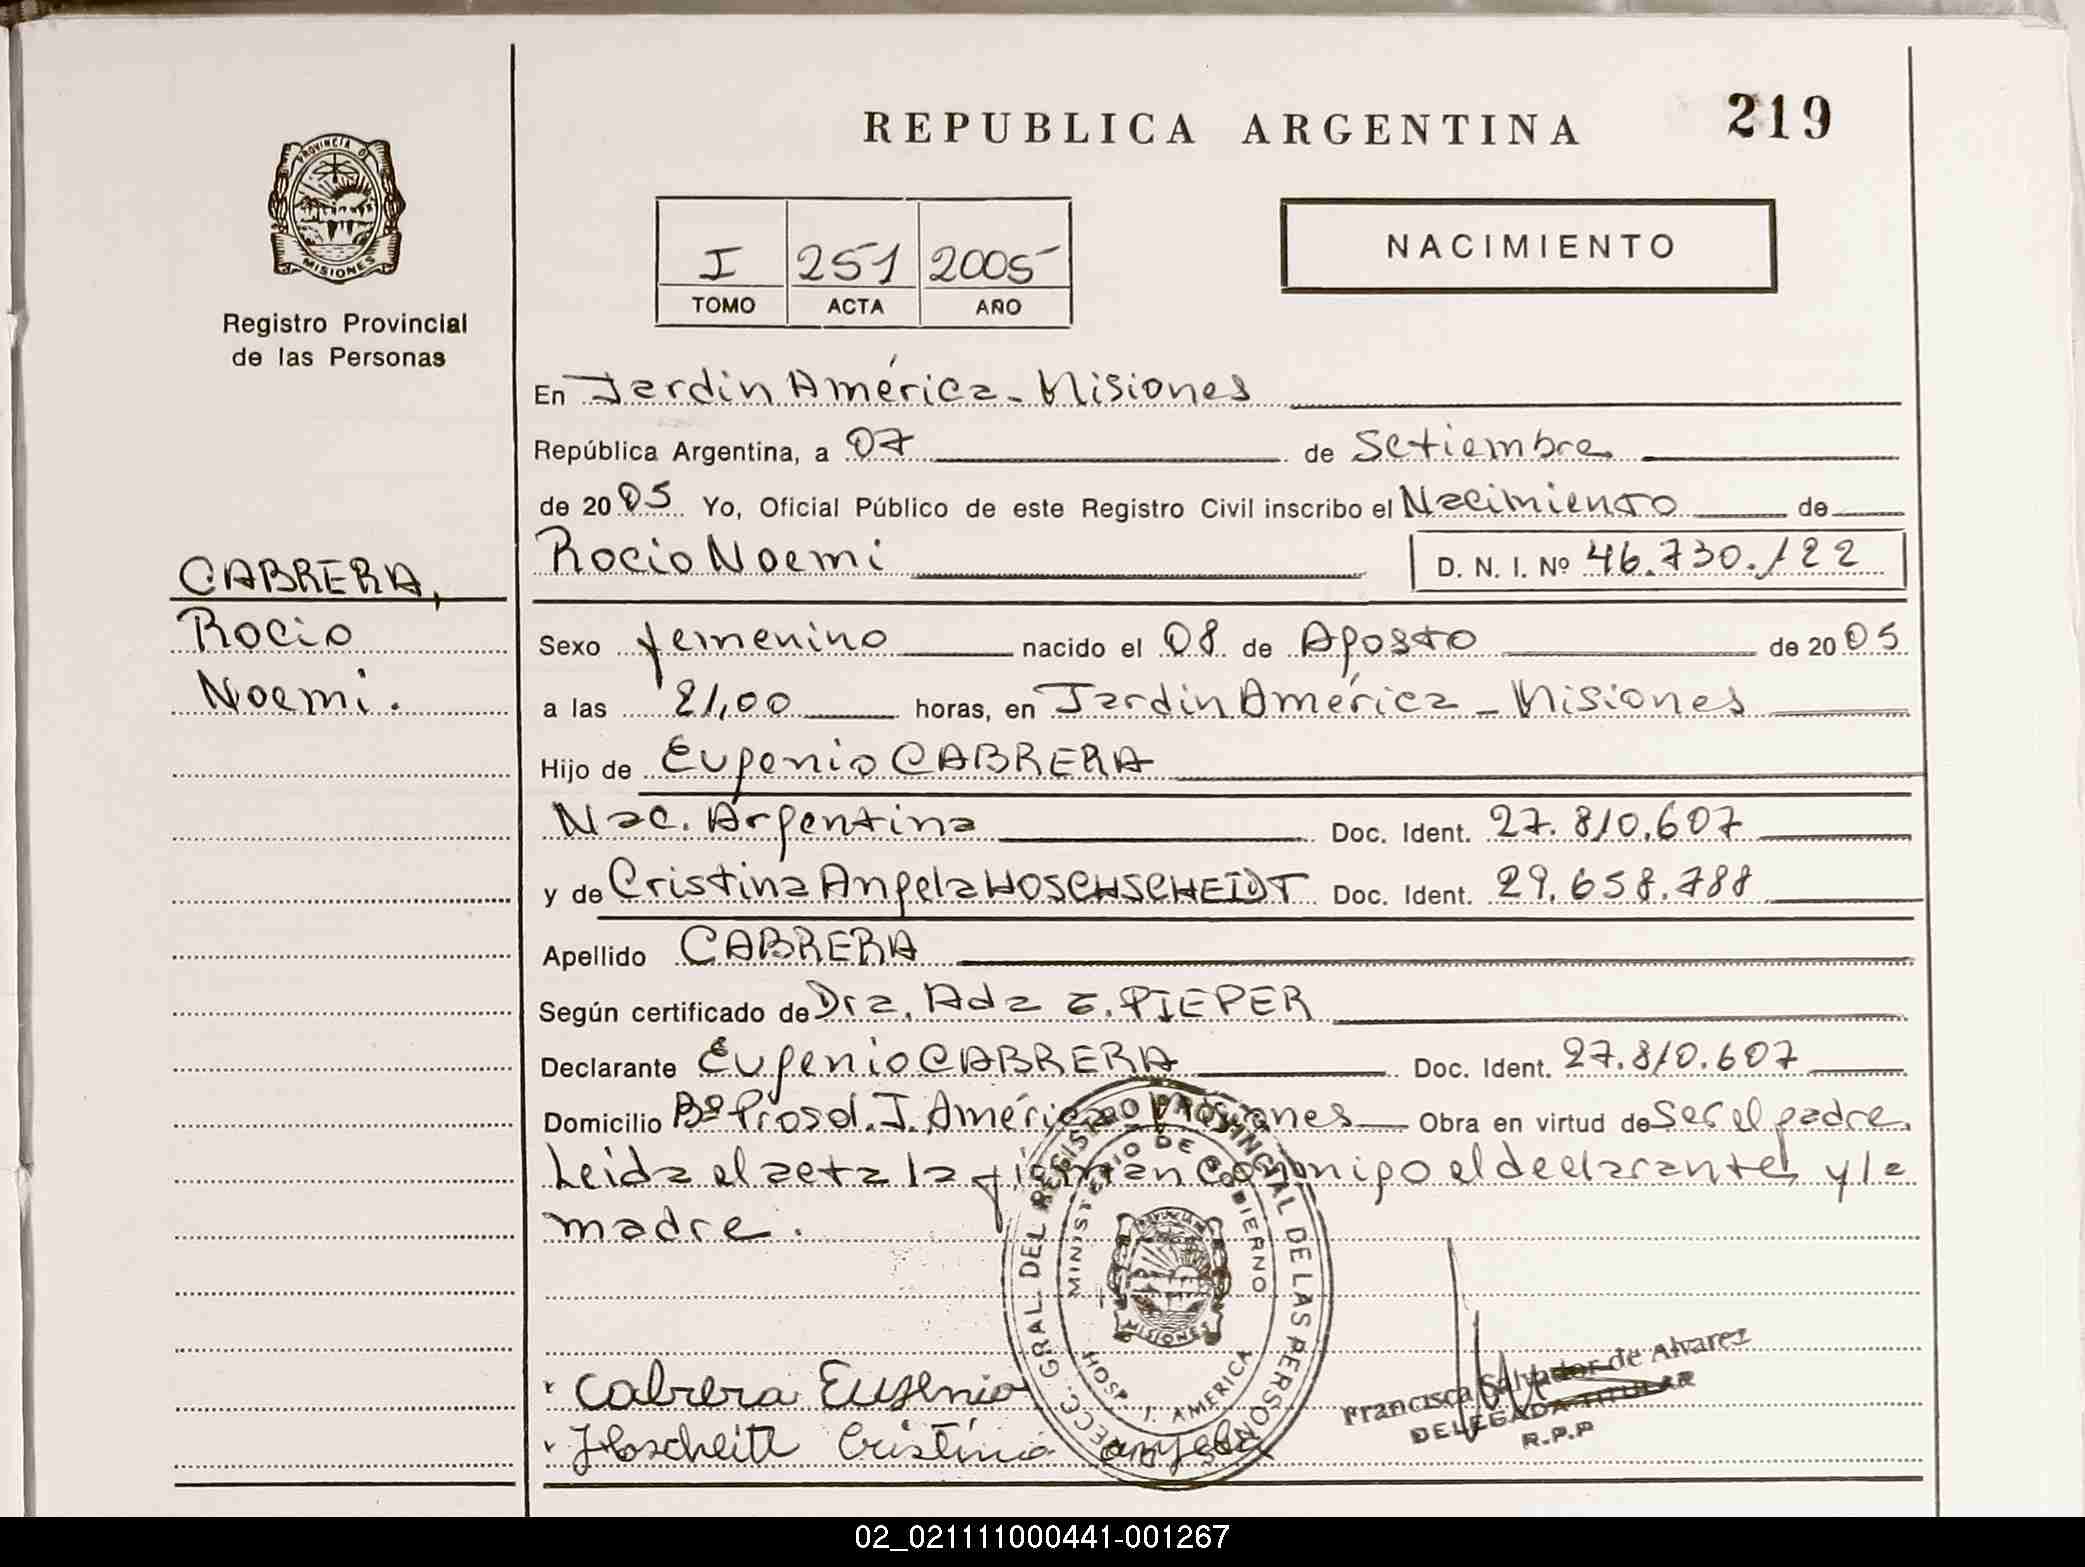 REPUBLICA ARGENTINA
219
PROVINCIA DE
MISIONES
Registro Provincial
de las Personas
I 251 2005
TOMO ACTA AÑO
NACIMIENTO
En Jardín América - Misiones
República Argentina, a 07 de Setiembre
de 2005 Yo, Oficial Público de este Registro Civil inscribo el Nacimiento de
Rocio Noemi D. N. I. Nº 46.730.122
CABRERA,
Rocio
Noemi.
Sexo femenino nacido el 08 de Agosto de 2005
a las 21,00 horas, en Jardin América - Misiones
Hijo de Eugenio CABRERA
Nac. Argentina Doc. Ident. 27.810.607
y de Cristina Angela HOSCHSCHEIDT Doc. Ident. 29.658.788
Apellido CABRERA
Según certificado de Dra. Ada E. PIEPER
Declarante Eugenio CABRERA Doc. Ident. 27.810.607
Domicilio Bº Prosol. J. América Misiones Obra en virtud de Ser el padre.
Leida el acta la firman conmigo el declarante y la
madre.
DIRECC. GRAL. DEL REGISTRO PROVINCIAL DE LAS PERSONAS
MINISTERIO DE GOBIERNO
PROVINCIA DE
MISIONES
HOSP. J. AMERICA
Cabrera Eugenio
Hoscheitt Cristina angela
Francisca Salvador de Alvarez
DELEGADA TITULAR
R.P.P
02_021111000441-001267